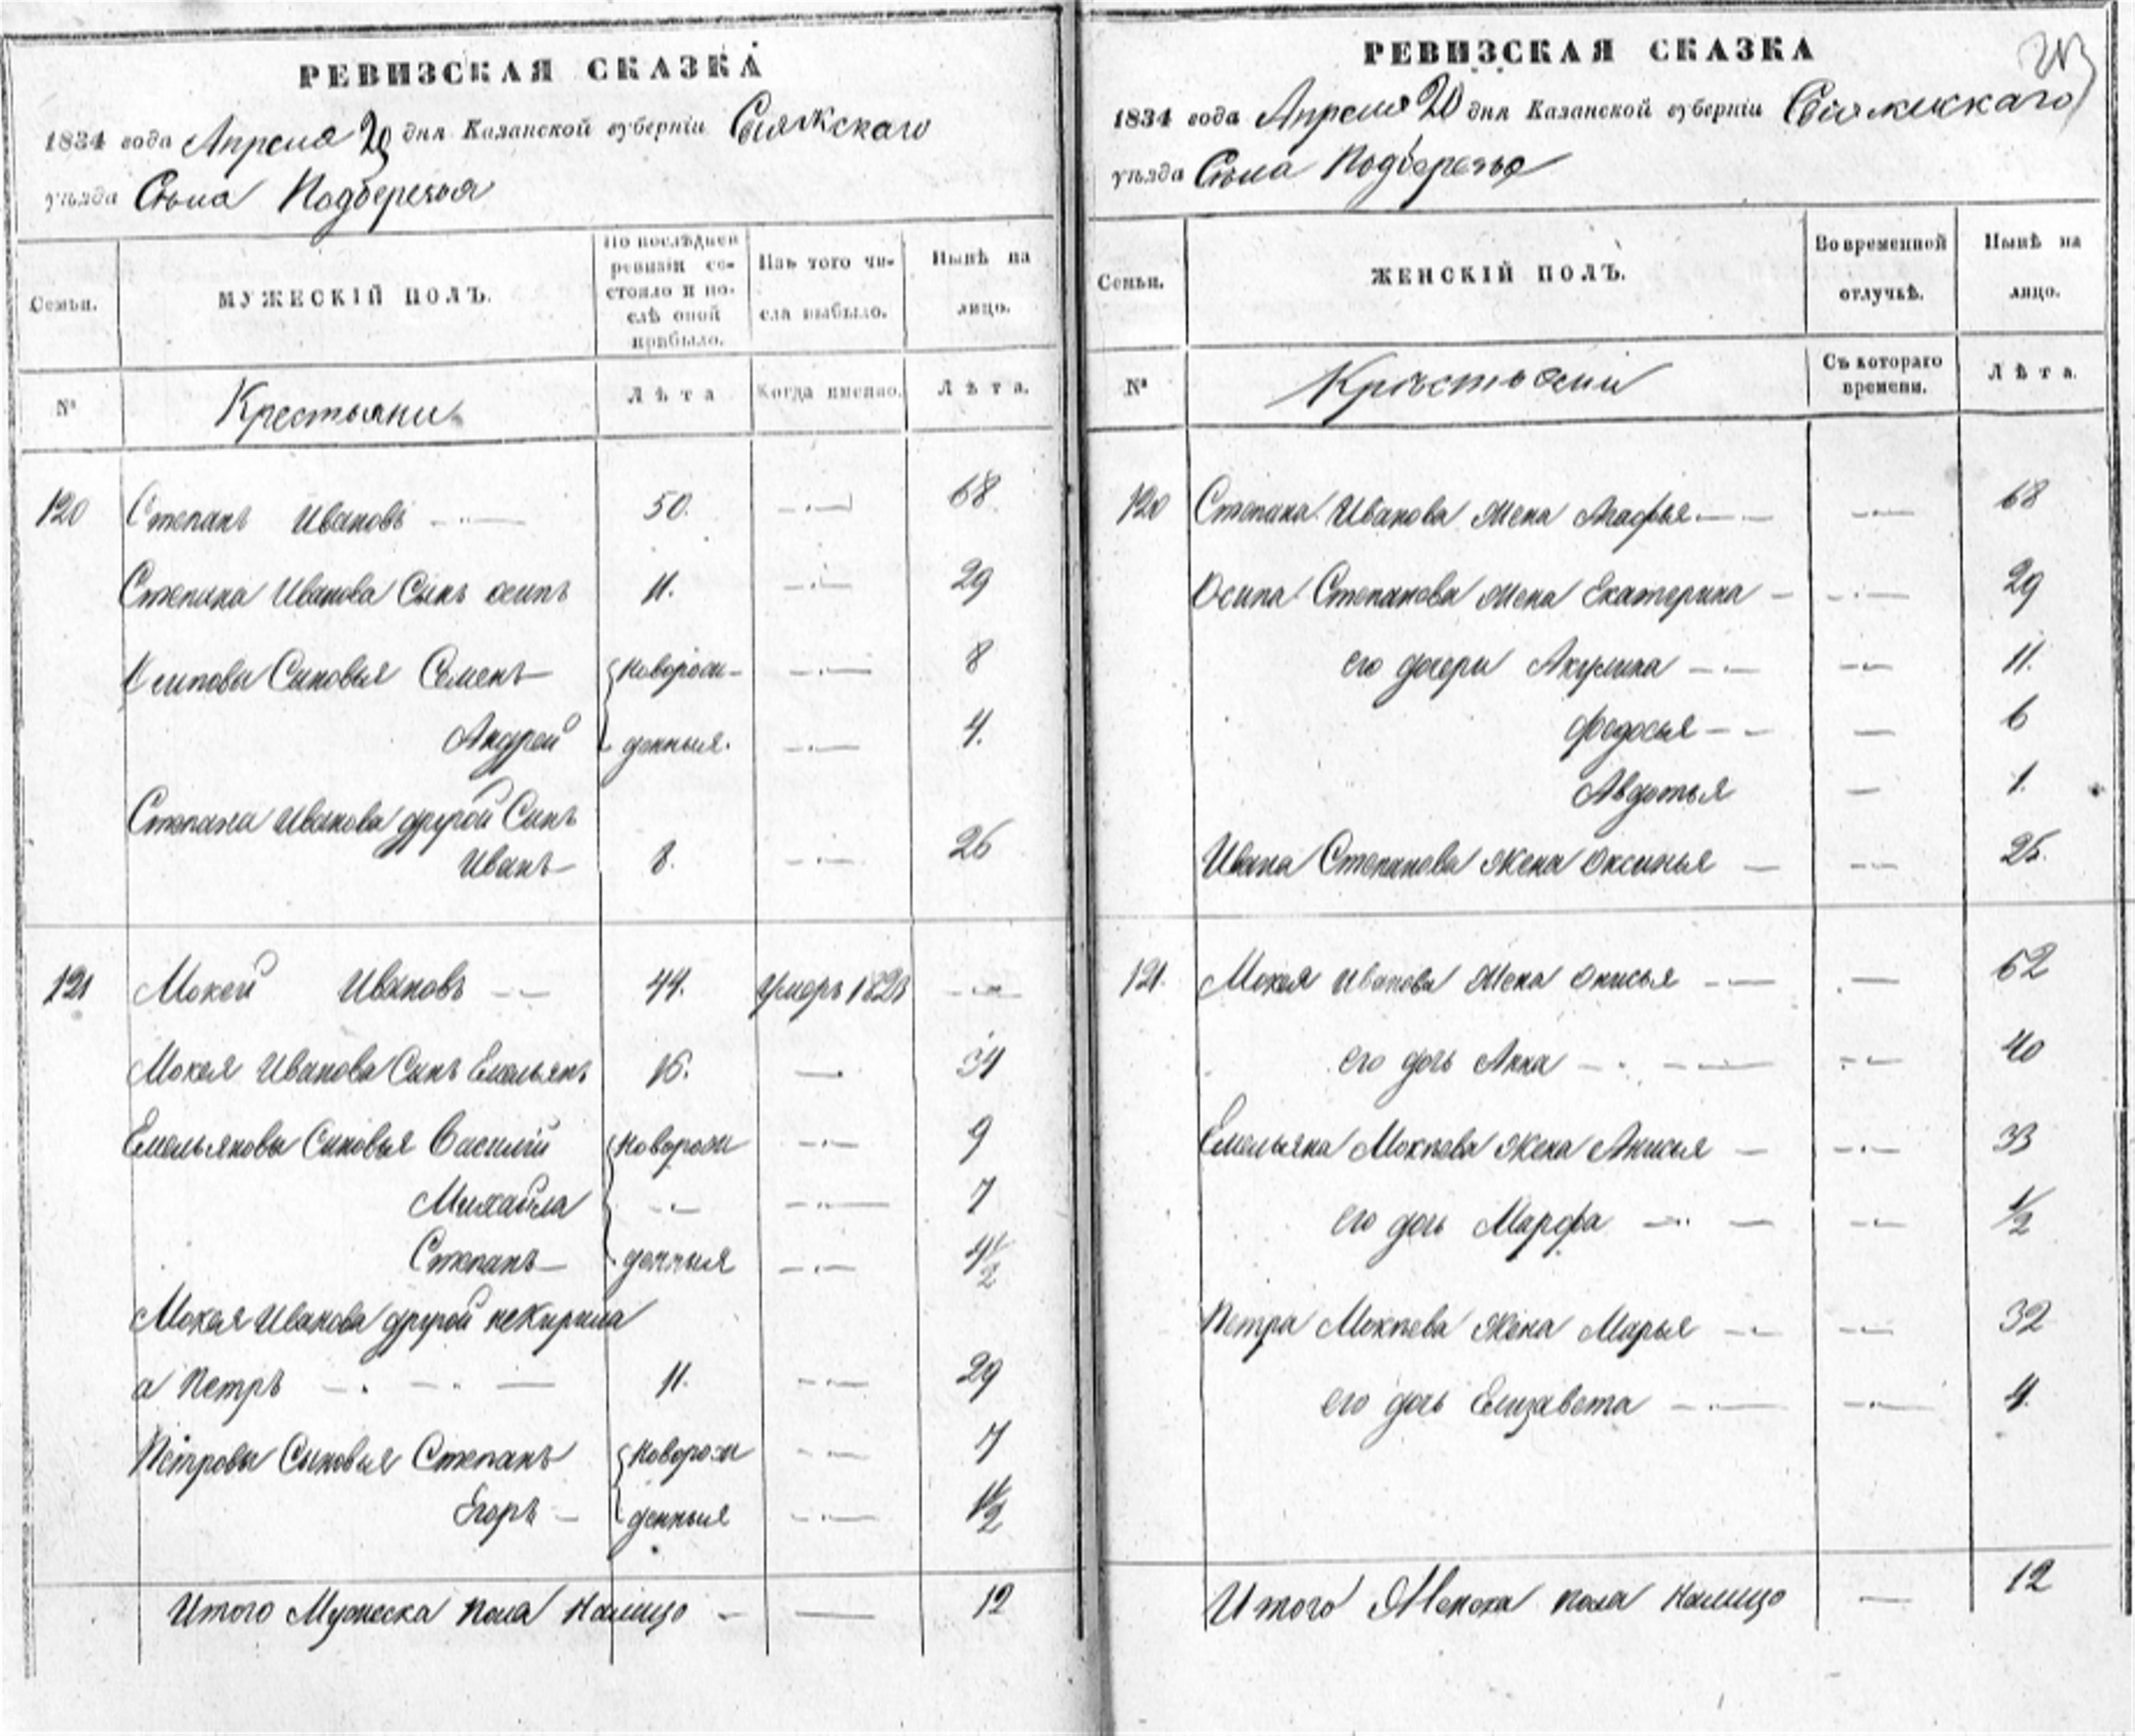 РЕВИЗСКАЯ СКАЗКА
1834 года Апреля 20 дня Казанской губерніи Свіяжскаго
уѣзда Сѣла Подберезья
Семьи.
МУЖЕСКІЙ ПОЛЪ.
По послѣдней ревизіи состояло и послѣ оной прибыло.
Изъ того числа выбыло.
Нынѣ на лицо.
№
Крестьяни
Лѣта
Когда именно.
Лѣта.
120 Степанъ Ивановъ 50. 68
Степана Иванова Сынъ осипъ 11. 29
Осиповы Сыновья Семенъ новорож- 8
Андрей денныя. 4.
Степана Иванова другой Сынъ
Иванъ 8. 26
121 Мокей Ивановъ 44. умеръ
Мокея Иванова Сынъ Емельянъ 16. 34
Емельяновы Сыновья Василій новорож 9
Михайла 7
Степанъ денныя 4 1/2
Мокея Иванова другой не Кирила
а Петръ 11. 29
Петровы Сыновья Степанъ новорож 7
Егоръ денныя 1 1/2
Итого Мужеска пола на лицо 12
РЕВИЗСКАЯ СКАЗКА
1834 года Апреля 20 дня Казанской губерніи Свіяжскаго
уѣзда Сѣла Подберезья
Семьи.
ЖЕНСКІЙ ПОЛЪ.
Во временной отлучкѣ.
Нынѣ на лицо.
№
Крестьянъ
Съ котораго времени.
Лѣта.
120 Степана Иванова жена Агафья 68
Осипа Степанова жена Екатерина 29
его дочери Акулина 11.
Федосья 6
Авдотья 1.
Ивана Степанова жена Оксинья 25.
121. Мокея Иванова жена Онисья 62
его дочь Анна 40
Емельяна Мокѣева жена Анисья 33
его дочь Марфа 1/2
Петра Мокѣева жена Марья 32
его дочь Елизавета 4.
Итого Женска пола на лицо 12